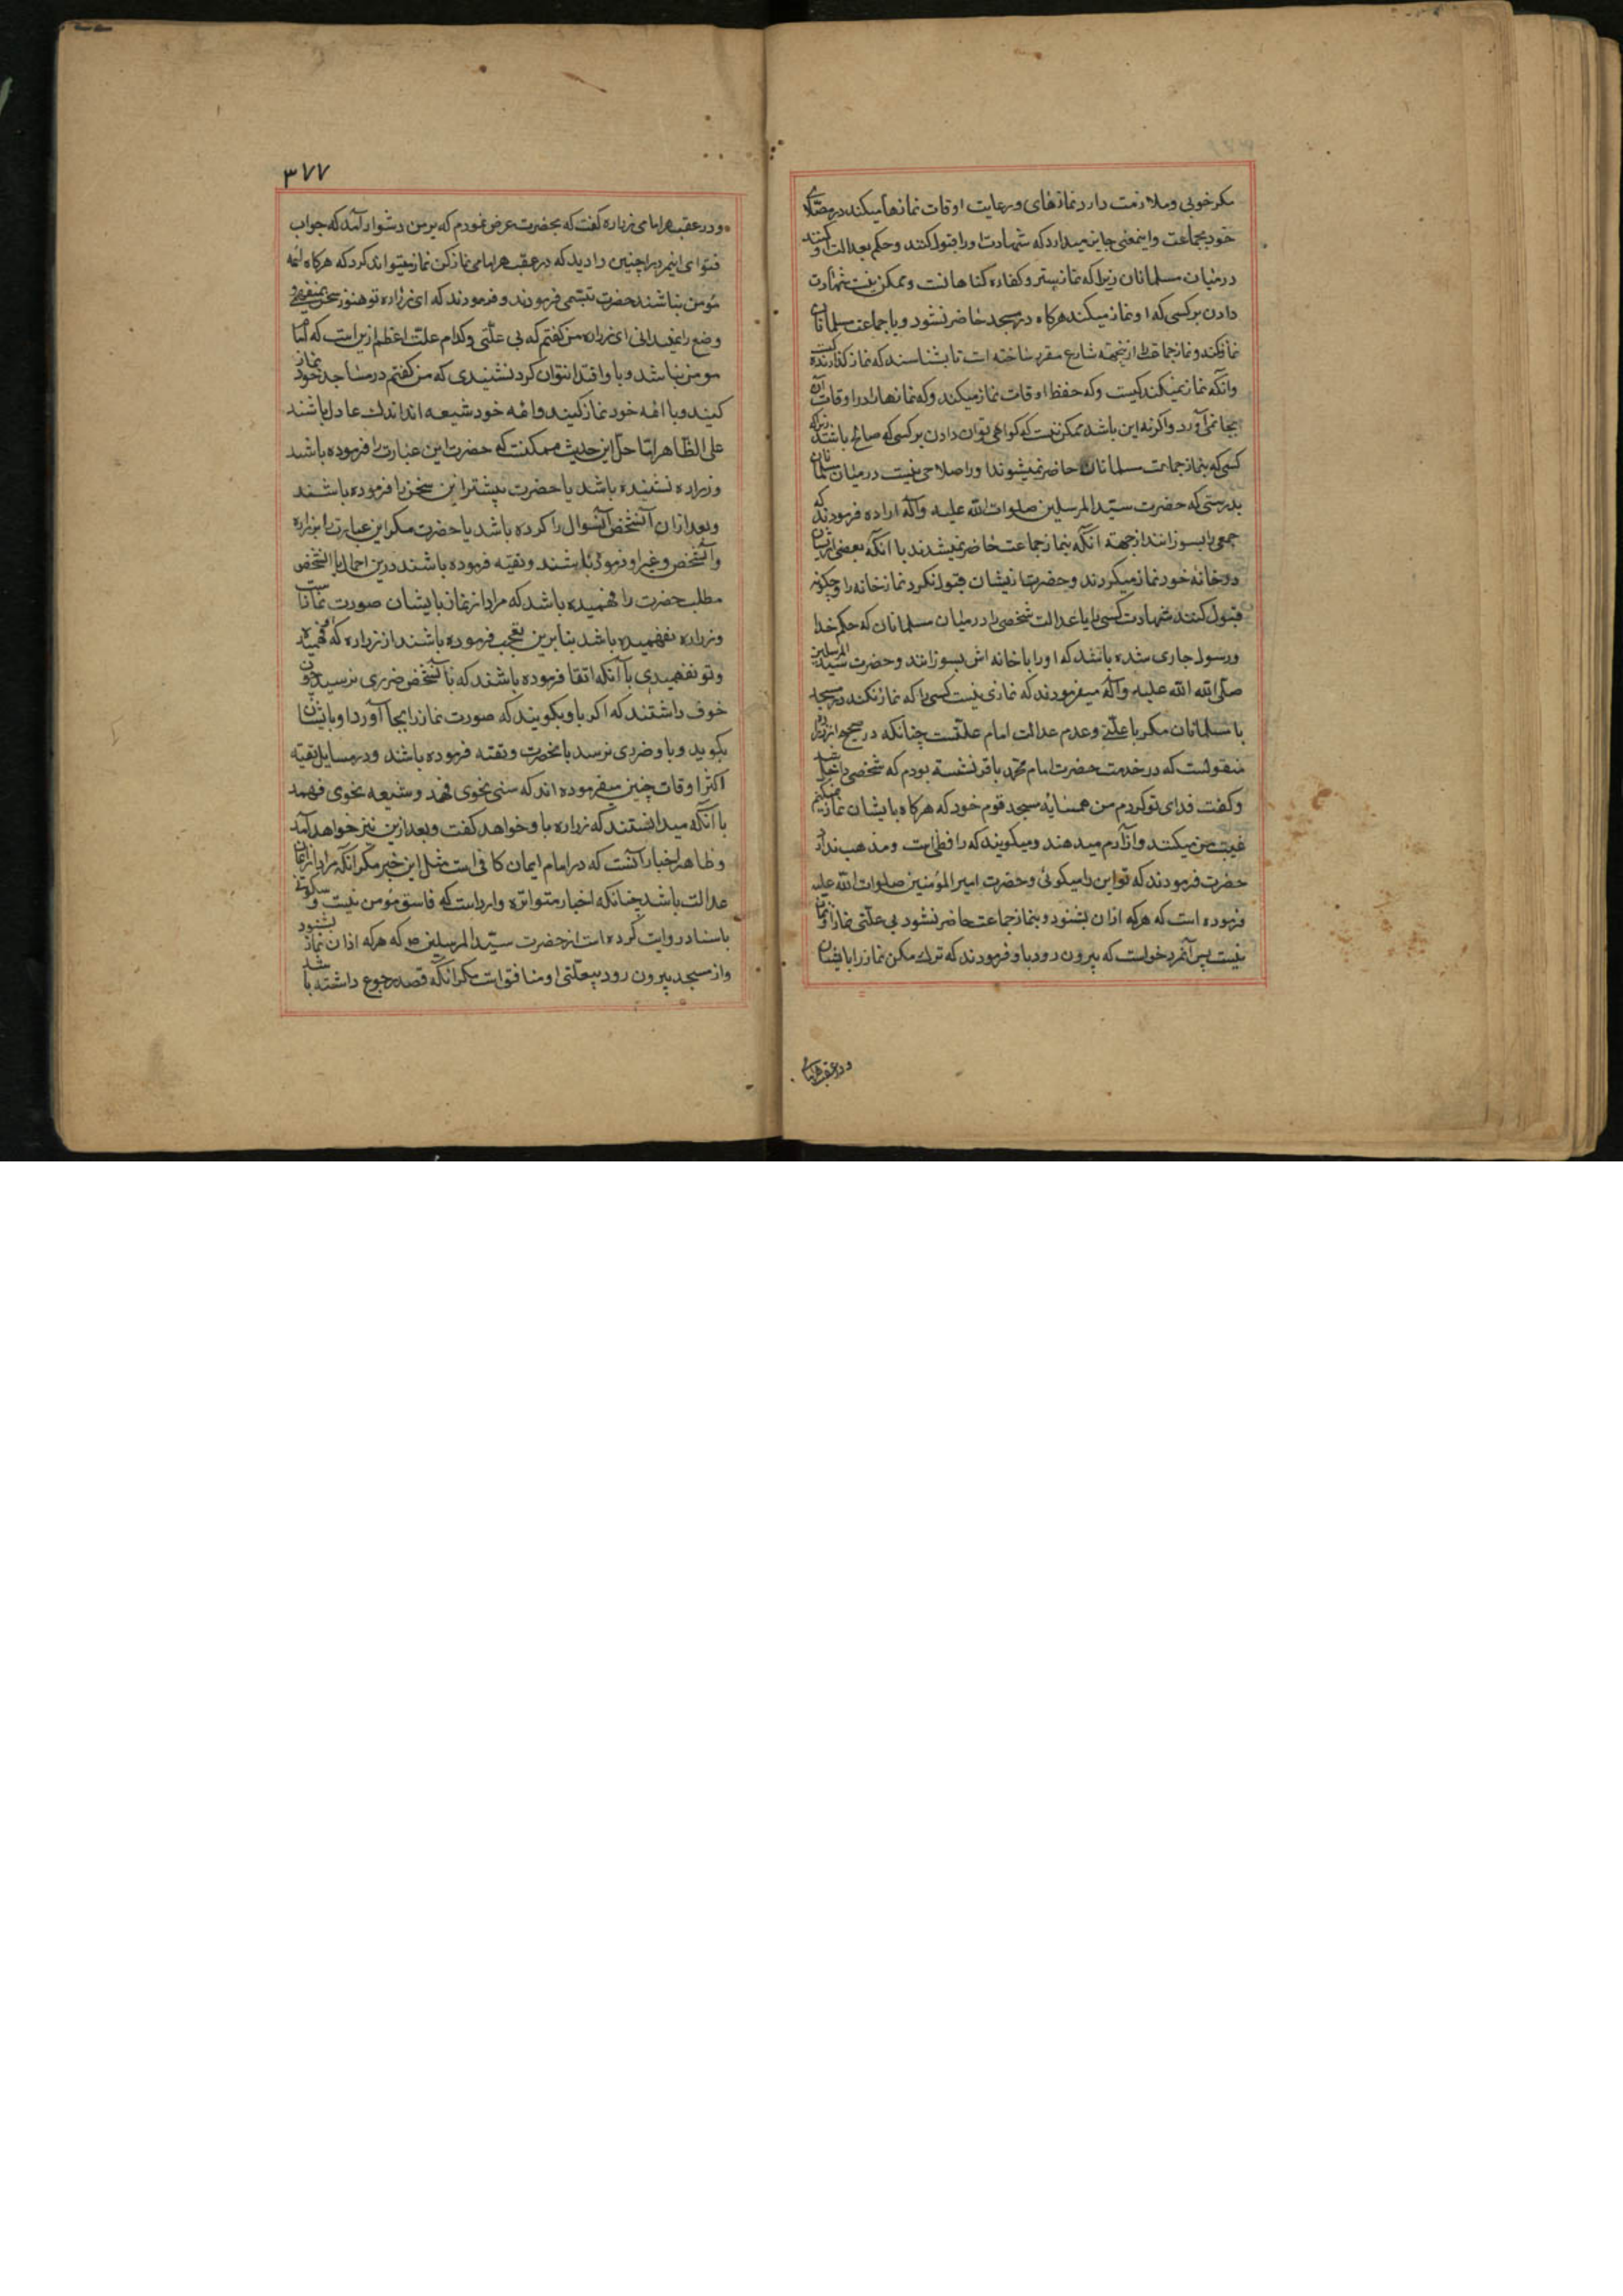 مکر خوبی و ملازمت دارد نمازهای و رعایت اوقات نمازها میکند در مصلای
خود بجماعت و اینمعنی جایز میدارد که شهادت او را قبول کنند و حکم بعدالت او کنند
در میان مسلمانان زیرا که نماز ستر و کفاره کناهانست و ممکن نیست شهادت
دادن بر کسی که او نماز میکند هرکاه در مسجد حاضر نشود و با جماعت مسلمانان
نماز نکند و نماز جماعت را ازینجهته شارع مقرر ساخته است تا بشناسند که نماز کذارنده کیست
وانکه نماز نمیکند کیست و که حفظ اوقات نماز میکند و که نمازها را در اوقات آن
بجا نمی آورد و اکر نه این باشد ممکن نیست که کواهی توان دادن بر کسی که صالح باشد زیرا که
کسی که بنماز جماعت مسلمانان حاضر نمیشوند او را صلاحی نیست در میان مسلمانان
بدرستی که حضرت سید المرسلین صلوات الله علیه وآله اراده فرمودند که
جمعی را بسوزانند ازجهته آنکه بنماز جماعت حاضر نمیشدند با آنکه بعضی ازیشان
در خانه خود نماز میکردند و حضرت ازیشان قبول نکرد نماز خانه را و چکونه
قبول کنند شهادت کسی را یا عدالت شخصی را در میان مسلمانان که حکم خدا
ورسول جاری شده باشد که او را با خانه اش بسوزانند و حضرت سید المرسلین
صلی الله الله علیه وآله میفرمودند که نمازی نیست کسی را که نماز نکند در مسجد
با مسلمانان مکر با علتی و عدم عدالت امام علتست چنانکه در صحیح از زراره
منقولست که در خدمت حضرت امام محمد باقر نشسته بودم که شخصی داخل شد
و کفت فدای تو کردم من همسایه مسجد قوم خود که هرکاه با یشان نماز نمیکنم
غیبت من میکنند و آزارم میدهند و میکویند که رافضی است و مذهب ندارد
حضرت فرمودند که تو این را میکوئی و حضرت امیر المؤمنین صلوات الله علیه
فرموده است که هرکه اذان بشنود و بنماز جماعت حاضر نشود بی علتی نماز او نماز
نیست پس آنمرد خواست که بیرون رود باو فرمودند که ترک مکن نماز را با ایشان
و در عقب هر امامی
۳۷۷
و در عقب هر امامی زراره کفت که بحضرت عرض نمودم که بر من دشوار آمد که جواب
فتوای اینمرد را چنین دادید که در عقب هر امامی نماز کن نماز میتواند کرد که هرکاه ائمه
مؤمن نباشند حضرت تبسمی فرمودند و فرمودند که ای زراره تو هنوز سخن نمیفهمی و
وضع را نمیدانی ای زراره من کفتم که بی علتی و کدام علت اعظم ازین است که امام
مومن نباشد و باو اقتدا نتوان کرد نشنیدی که من کفتم در مساجد خود نماز
کنید و با ائمه خود نماز کنید و ائمه خود شیعه اند اندک عادل باشند
علی الظاهر اما حل این حدیث ممکنست که حضرت این عبارت را فرموده باشد
و زراره نشنیده باشد یا حضرت پیشتر این سخن را فرموده باشند
و بعد از ان آنشخص آنسوال را کرده باشد یا حضرت مکرر این عبارت را بزراره
و آنشخص و غیر او فرموده باشند و تقیه فرموده باشند درین احمال با آنشخص
مطلب حضرت را فهمیده باشد که مراد از نماز با یشان صورت نماز است
و زراره نفهمیده باشد بنا برین تعجب فرموده باشند از زراره که او فهمید
و تو نفهمیدی با آنکه اتقا فرموده باشند که با آنشخص ضرری نرسید چون
خوف داشتند که اکر باو بکویند که صورت نماز را بجا آور او بایشان
بکوید و باو ضرری نرسد بانحضرت و تقیه فرموده باشند و در مسایل تقیه
اکثر اوقات چنین میفرموده اند که سنی بنحوی فهمد و شیعه بنحوی فهمد
با آنکه میدانستند که زراره باو خواهد کفت و بعد ازین نیز خواهد آمد
و ظاهر اخبار آنست که در امام ایمان کافی است مثل این خبر مکر آنکه مراد از ایمان
عدالت باشد چنانکه اخبار متواتره وارد است که فاسق مؤمن نیست و سکونی
باسناد روایت کرده است از حضرت سید المرسلین ص که هرکه اذان نماز بشنود
و از مسجد بیرون رود بیعلتی او منافق است مکر انکه قصد رجوع داشته باشد